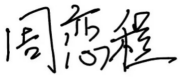 周恋程